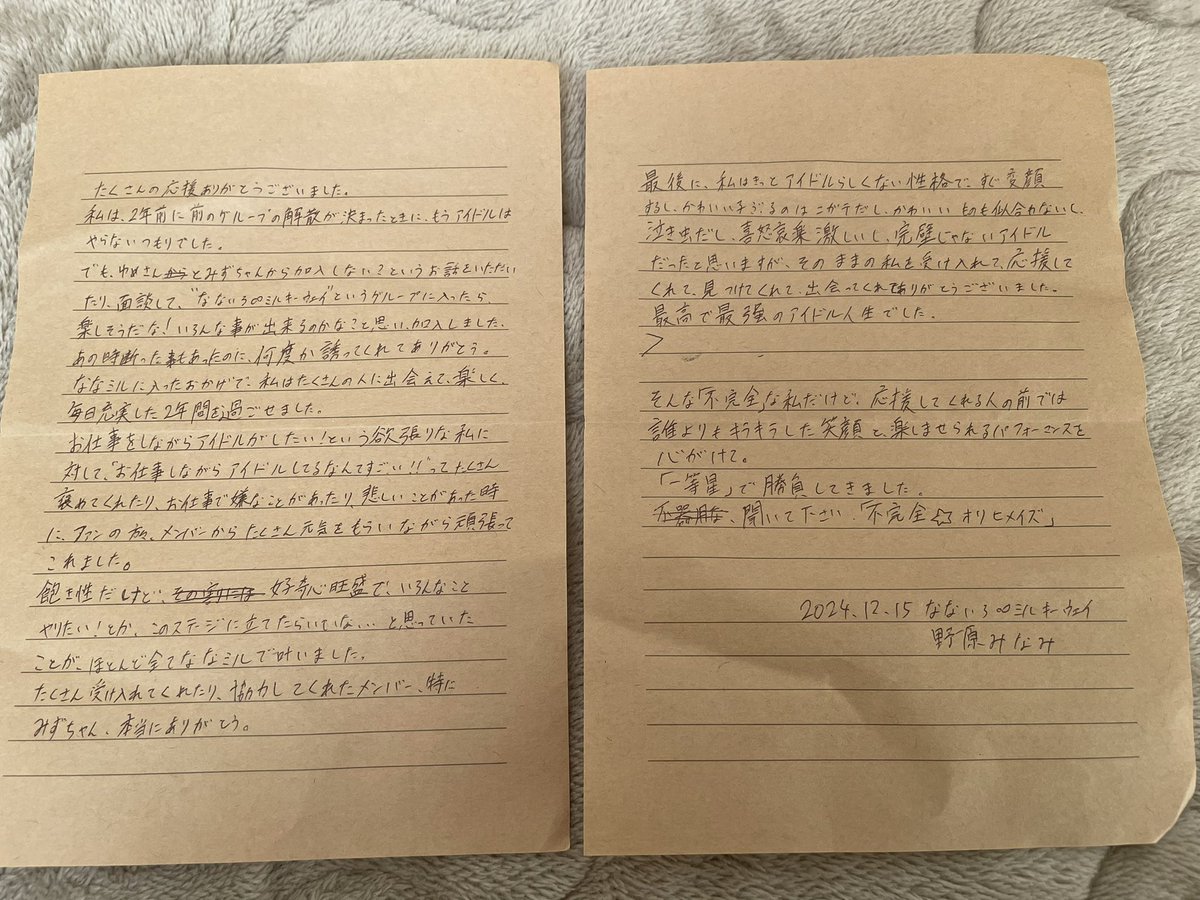 たくさんの応援ありがとうございました。
私は、2年前に前のグループの解散が決まったときに、もうアイドルは
やらないつもりでした。
でも、ゆめさんとみずちゃんから加入しない？というお話をいただい
たり、面談して、"なないろ∞ミルキーウェイ"というグループに入ったら、
楽しそうだな！いろんな事が出来るのかな？と思い、加入しました。
あの時断った事もあったのに、何度か誘ってくれてありがとう。
ななミルに入ったおかげで、私はたくさんの人に出会えて、楽しく、
毎日充実した2年間を過ごせました。
お仕事をしながらアイドルがしたい！という欲張りな私に
対して、"お仕事しながらアイドルしてるなんてすごい！！"ってたくさん
褒めてくれたり、お仕事で嫌なことがあったり、悲しいことがあった時
に、ファンの方、メンバーからたくさん元気をもらいながら頑張って
これました。
飽き性だけど、その割には 好奇心旺盛で、いろんなこと
やりたい！とか、このステージに立てたらいいな… と思っていた
ことが、ほとんど全てななミルで叶いました。
たくさん受け入れてくれたり、協力してくれたメンバー、特に
みずちゃん、本当にありがとう。
最後に、私はきっとアイドルらしくない性格で、すぐ変顔
するし、かわい子ぶるのはニガテだし、かわいいものも似合わないし、
泣き虫だし、喜怒哀楽激しいし、完璧じゃないアイドル
だったと思いますが、そのままの私を受け入れて、応援して
くれて、見つけてくれて、出会ってくれてありがとうございました。
最高で最強のアイドル人生でした。
そんな「不完全」な私だけど、応援してくれる人の前では
誰よりもキラキラした笑顔と、楽しませられるパフォーマンスを
心がけて。
「一等星」で勝負してきました。
不器用な、聞いて下さい「不完全☆オリヒメイズ」
2024.12.15 なないろ∞ミルキーウェイ
野原みなみ